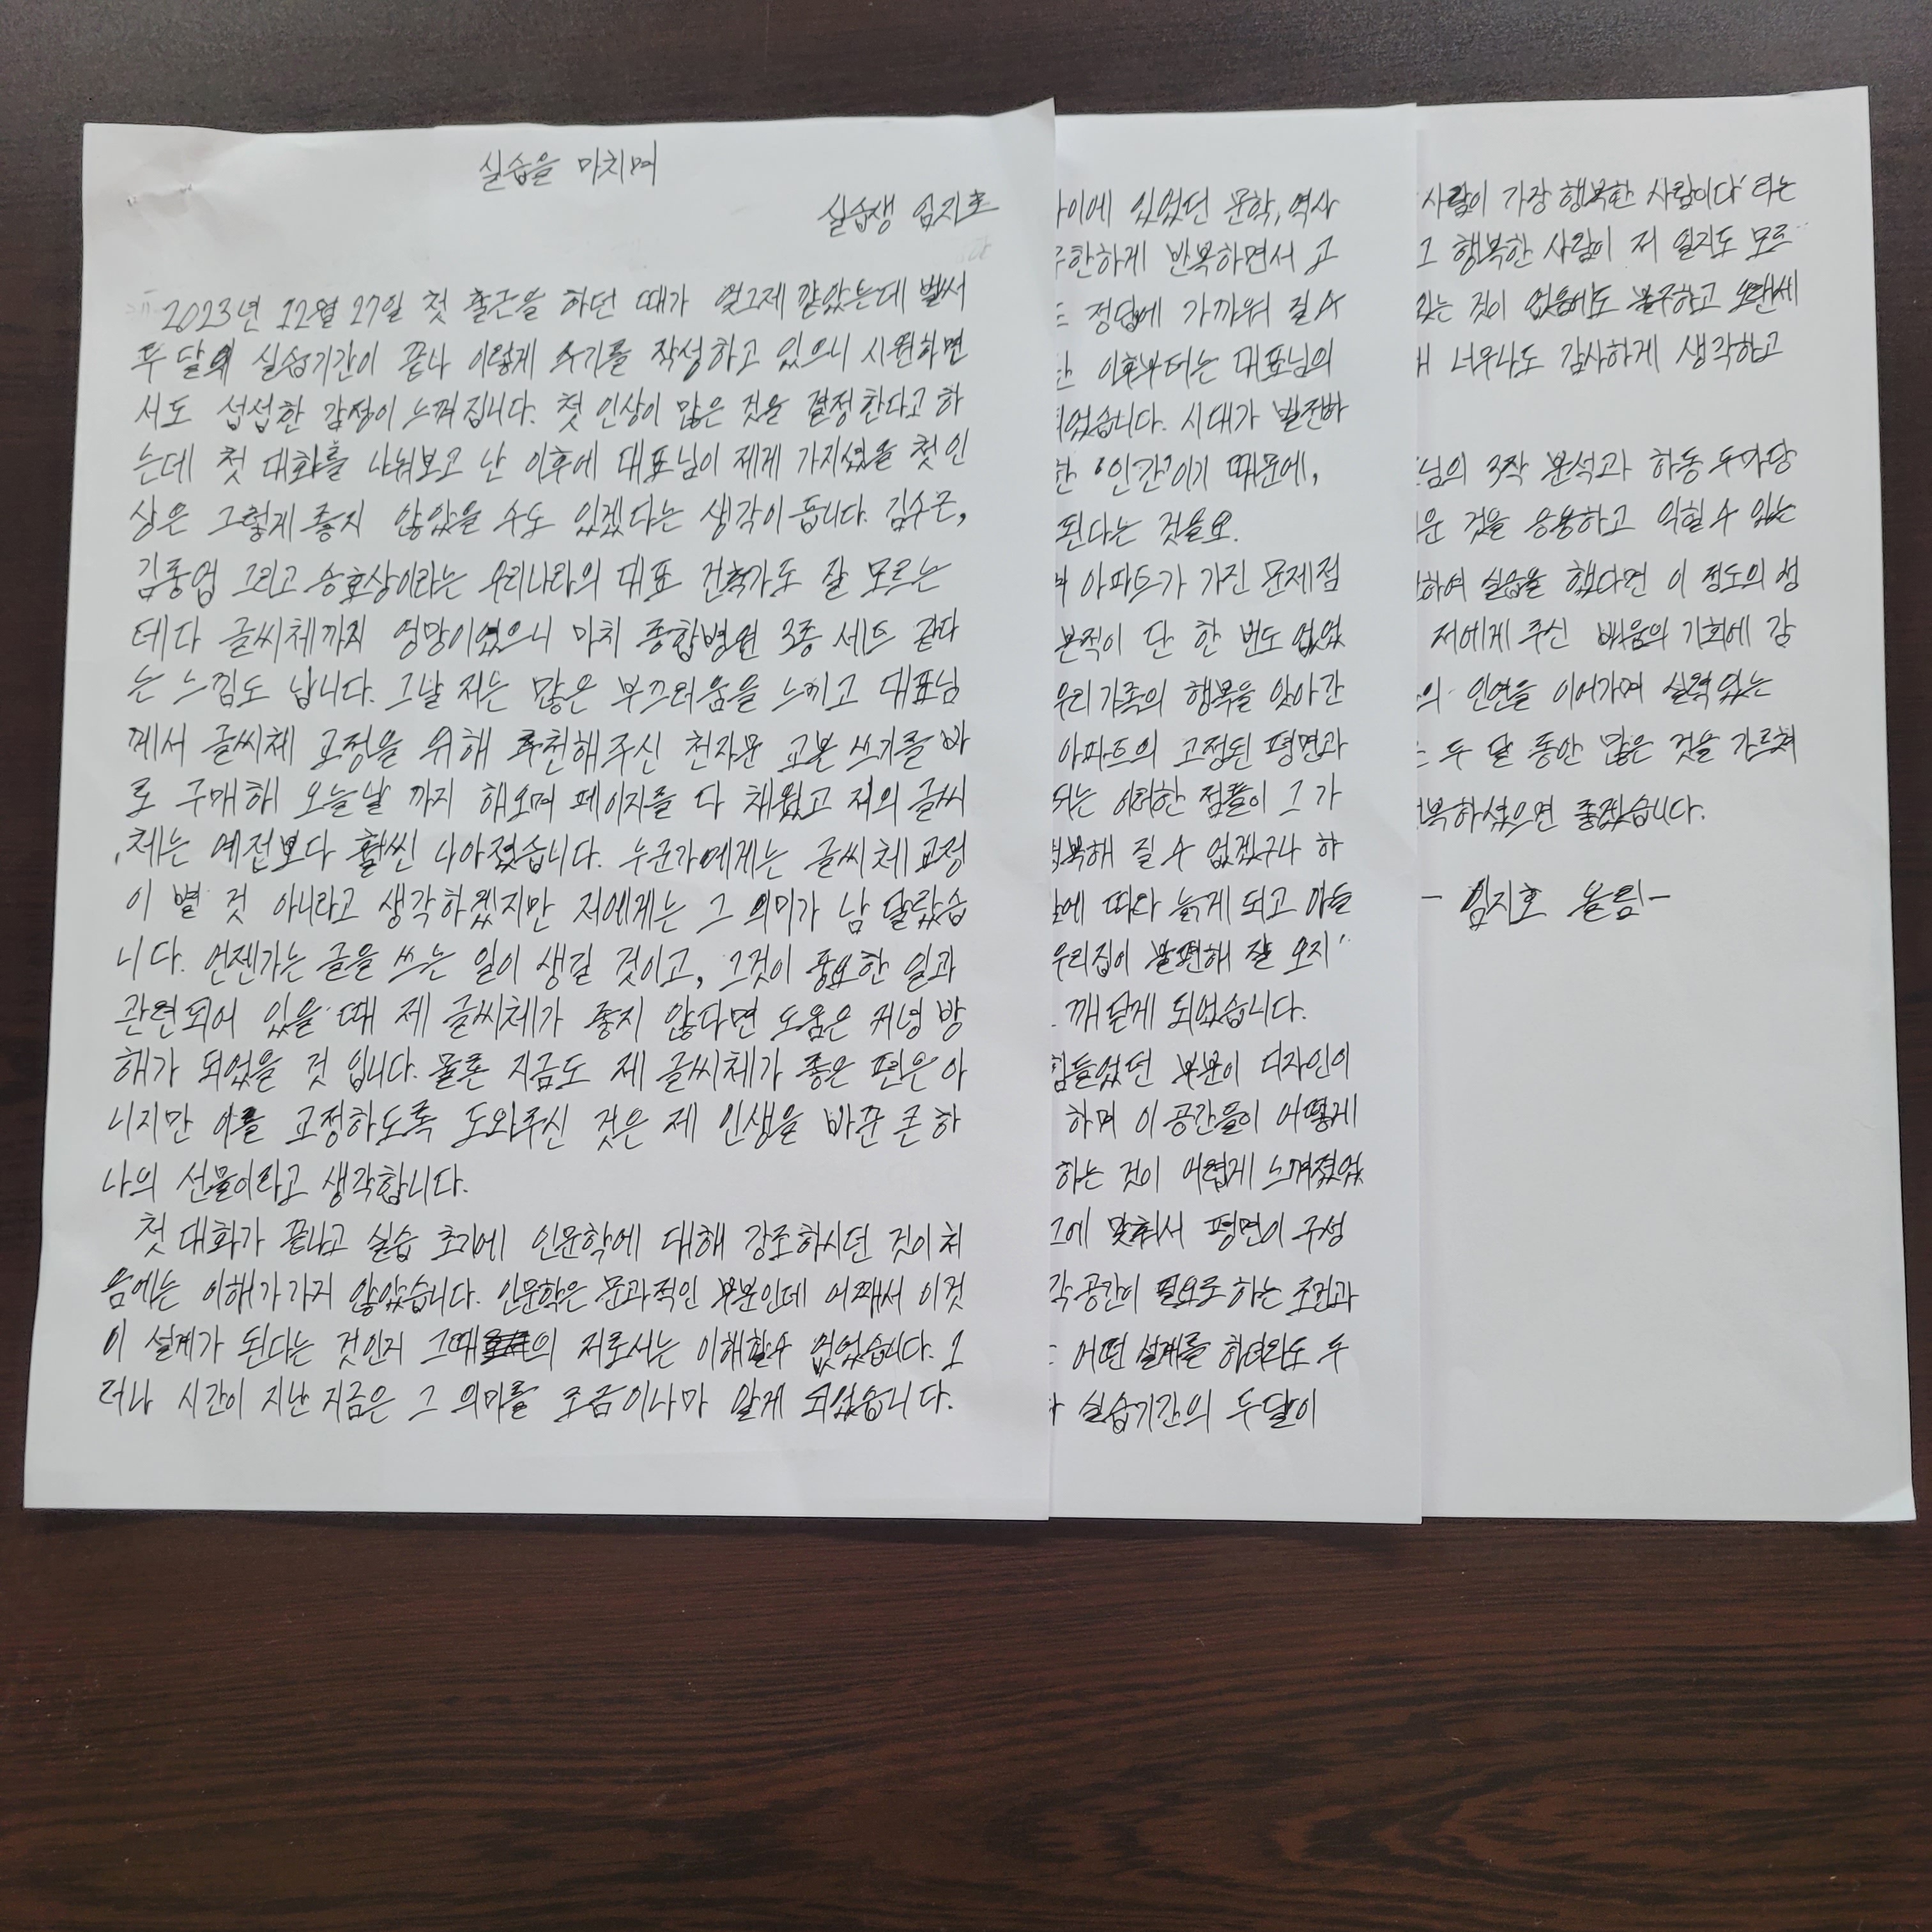 실습을 마치며
실습생 임지호
2023년 12월 27일 첫 출근을 하던 때가 엊그제 같았는데 벌써
두 달의 실습기간이 끝나 이렇게 수기를 작성하고 있으니 시원하면
서도 섭섭한 감정이 느껴집니다. 첫 인상이 많은 것을 결정한다고 하
는데 첫 대화를 나눠보고 난 이후에 대표님이 제게 가지셨을 첫 인
상은 그렇게 좋지 않았을 수도 있겠다는 생각이 듭니다. 김수근,
김중업 그리고 승효상이라는 우리나라의 대표 건축가도 잘 모르는
데다 글씨체까지 엉망이었으니 마치 종합병원 3종 세트 같다
는 느낌도 납니다. 그날 저는 많은 부끄러움을 느끼고 대표님
께서 글씨체 교정을 위해 추천해주신 천자문 교본 쓰기를 바
로 구매해 오늘날 까지 해오며 페이지를 다 채웠고 저의 글씨
체는 예전보다 훨씬 나아졌습니다. 누군가에게는 글씨체 교정
이 별 것 아니라고 생각하겠지만 저에게는 그 의미가 남 달랐습
니다. 언젠가는 글을 쓰는 일이 생길 것이고, 그것이 중요한 일과
관련되어 있을 때 제 글씨체가 좋지 않다면 도움은 커녕 방
해가 되었을 것 입니다. 물론 지금도 제 글씨체가 좋은 편은 아
니지만 이를 교정하도록 도와주신 것은 제 인생을 바꾼 큰 하
나의 선물이라고 생각합니다.
첫 대화가 끝나고 실습 초기에 인문학에 대해 강조하시던 것이 처
음에는 이해가 가지 않았습니다. 인문학은 문과적인 부분인데 어째서 이것
이 설계가 된다는 것인지 그때의 저로서는 이해할수 없었습니다. 그
러나 시간이 지난 지금은 그 의미를 조금이나마 알게 되었습니다.
이에 있었던 문학, 역사
한하게 반복하면서 고
정답에 가까워 질 수
이후부터는 대표님의
었습니다. 시대가 발전하
한 '인간'이기 때문에,
된다는 것을요.
아파트가 가진 문제점
본적이 단 한 번도 없었
우리 가족의 행복을 앗아간
아파트의 고정된 평면과
되는 이러한 점들이 그 가
복해 질 수 없겠구나 하
에 따라 늙게 되고 아들
우리집이 불편해 잘 오지
깨닫게 되었습니다.
힘들었던 부분이 디자인이
하며 이 공간들이 어떻게
하는 것이 어렵게 느껴졌었
그에 맞춰서 평면이 구성
각 공간이 필요로 하는 조건과
어떤 설계를 하더라도 두
실습기간의 두달이
사람이 가장 행복한 사람이다' 라는
그 행복한 사람이 저 일지도 모르
것이 없음에도 불구하고
너무나도 감사하게 생각하고
님의 3작 분석과 하동 두마당
운 것을 응용하고 익힐 수 있는
하여 실습을 했다면 이 정도의 성
저에게 주신 배움의 기회에 감
의 인연을 이어가며 실력있는
두 달 동안 많은 것을 가르쳐
복하셨으면 좋겠습니다.
- 임지호 올림 -